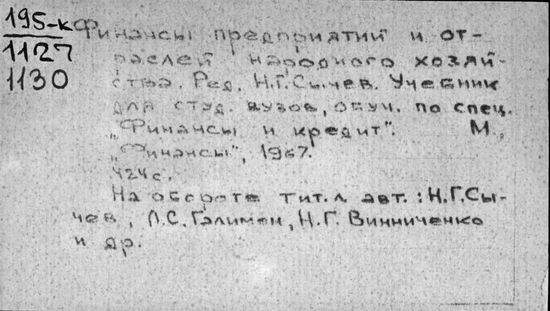 195-к
1127
1130
Финансы предприятий и от-
раслей народного хозяй-
ства. Ред. Н.Г. Сычев. Учебник
для студ. вузов, обуч. по спец.
„Финансы и кредит". М.,
„Финансы", 1967.
424 с.
На обороте тит. л. авт.: Н.Г. Сы-
чев, Л.С. Галимон, Н.Г. Винниченко
и др.